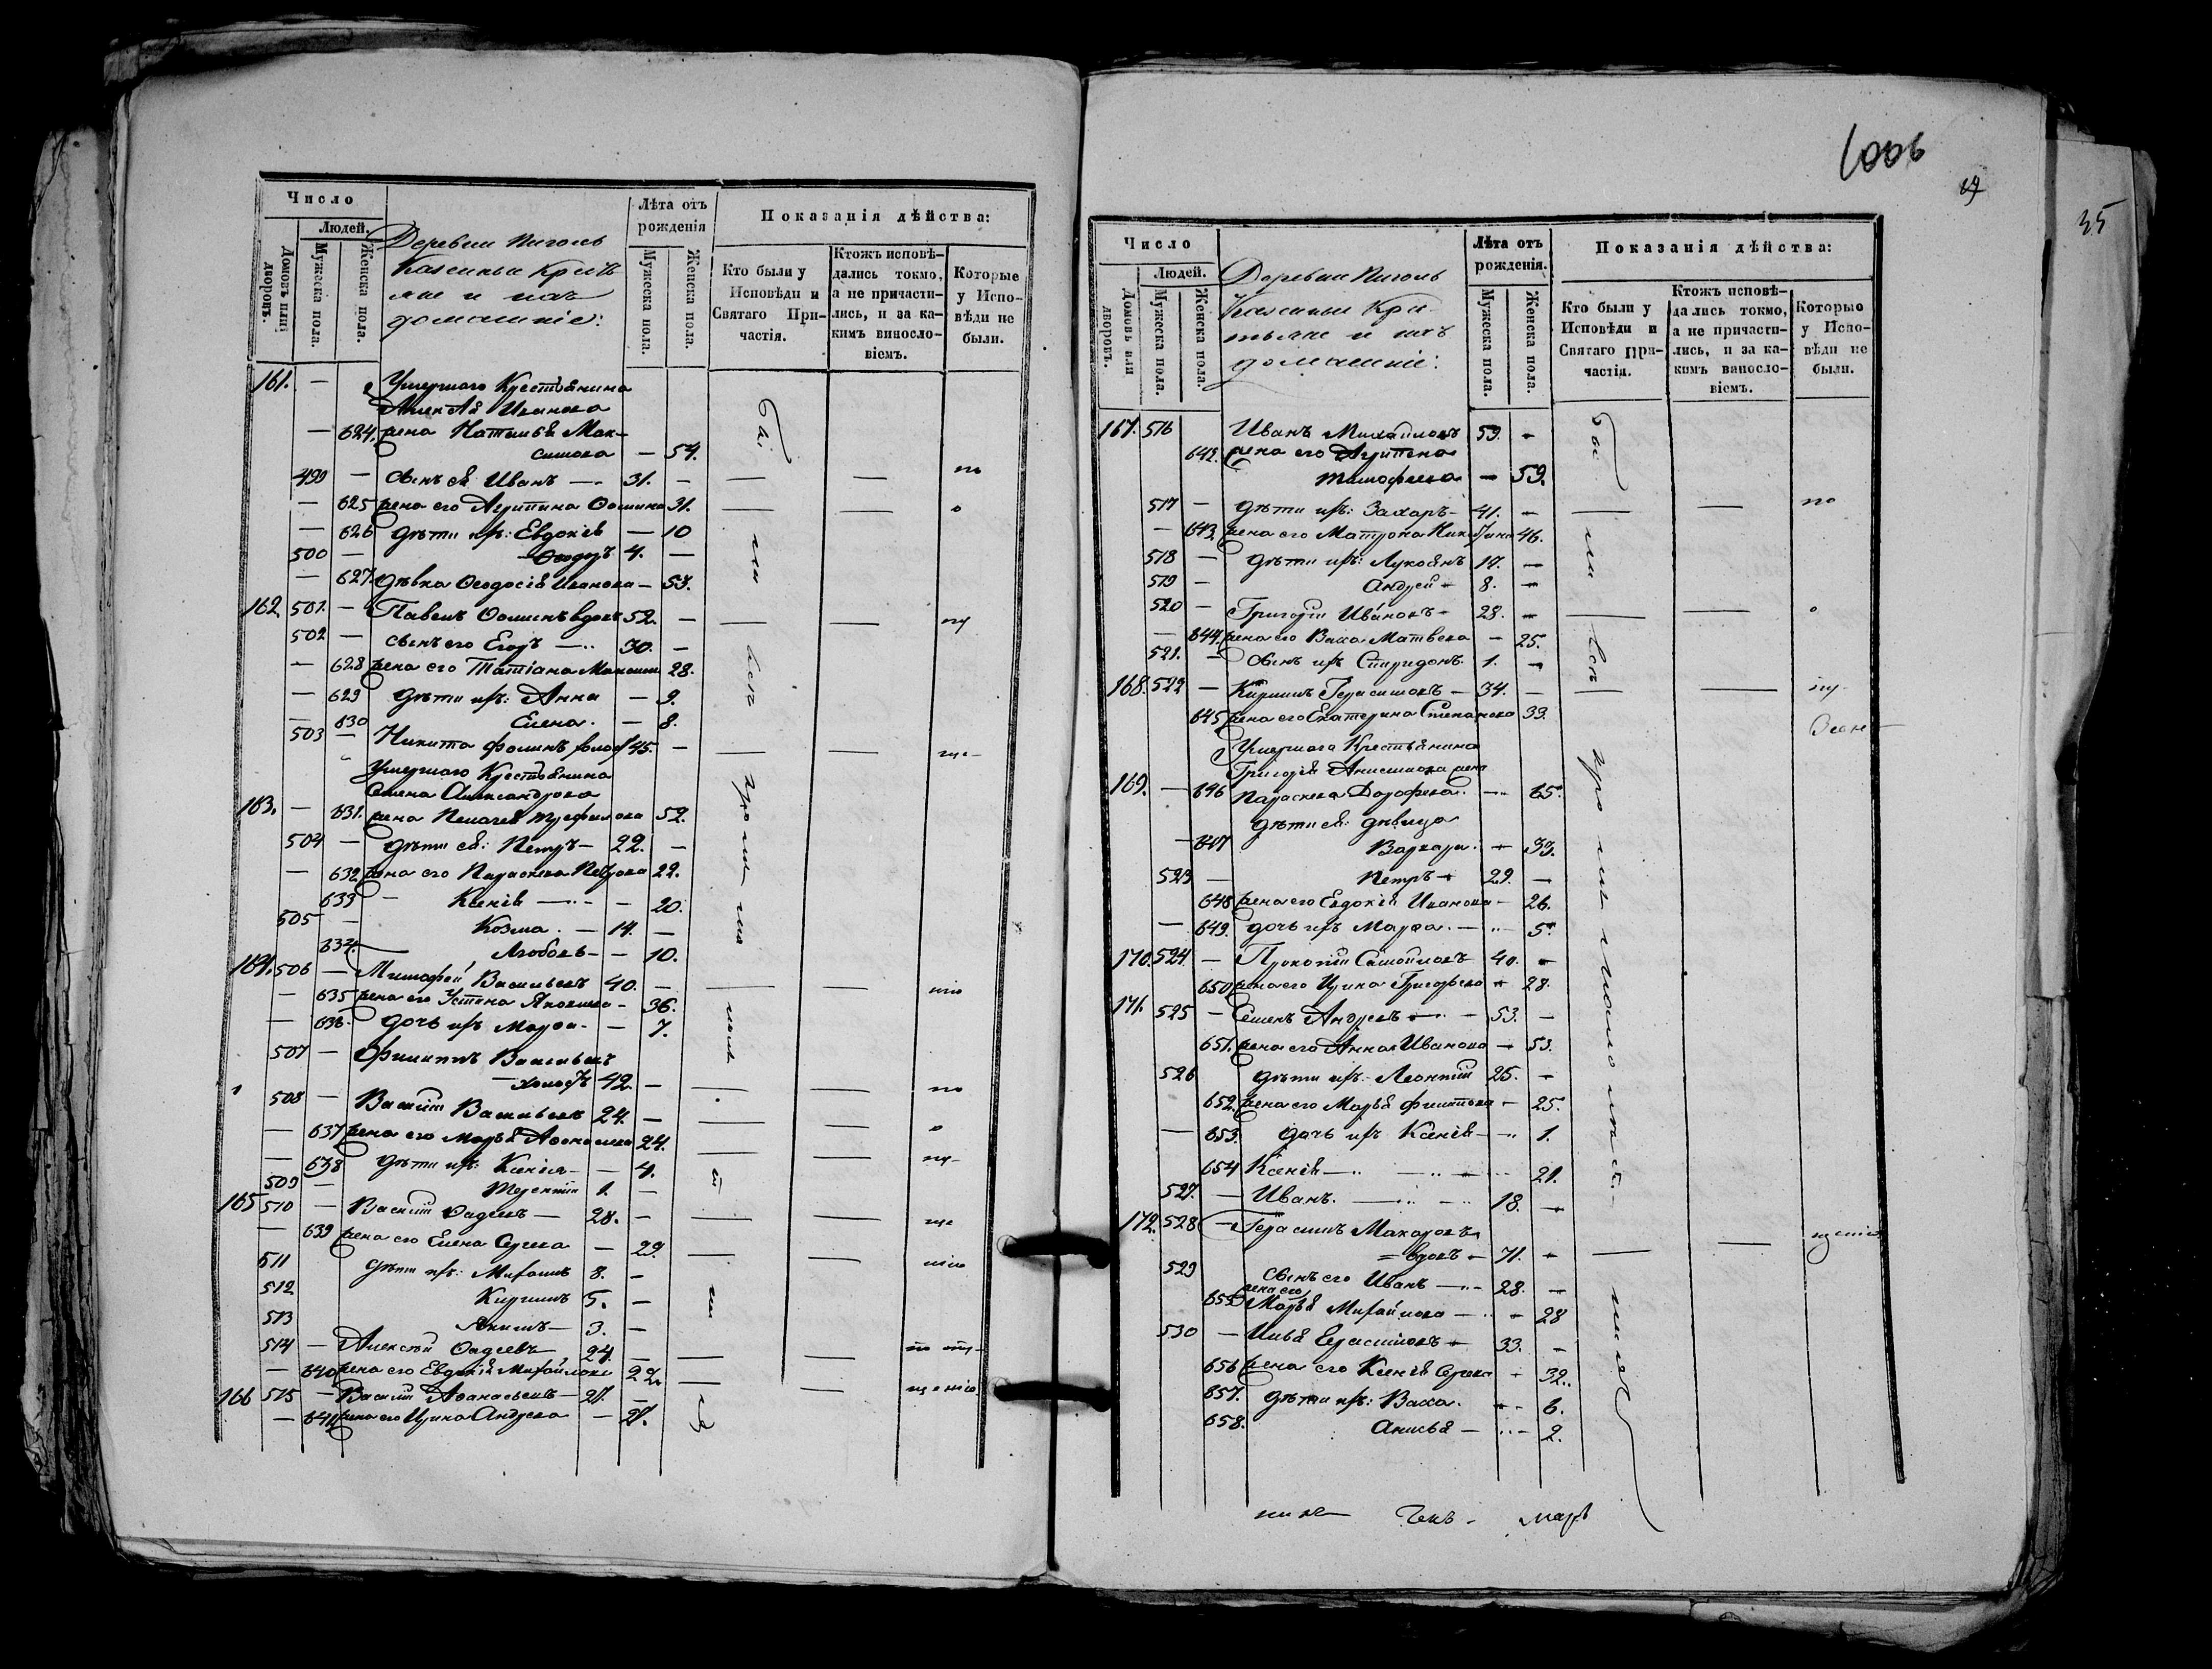 Число
Людей.
Домовъ или дворовъ.
Мужеска пола.
Женска пола.
Деревни Пиголь
Казенные Кресть
яне и ихъ
домашніе:
Лѣта отъ рожденія
Мужеска пола.
Женска пола.
Показанія дѣйства:
Кто были у Исповѣди и Святаго Причастія.
Ктожъ исповѣдались токмо, а не причастились, и за какимъ винословіемъ.
Которые у Исповѣди не были.
161. — Умершаго Крестьянина
Алексѣя Иванова
— 624. жена Наталья Мак-
симова — 54.
499 — сынъ ея Иванъ — 31. —
— 625 жена его Агрипина Фомина 31.
— 626 дѣти ихъ: Евдокія — 10
500 — Ѳеодоръ 4. —
— 627. дѣвка Ѳеодосія Иванова — 53.
162. 501. — Павелъ Фоминъ вдовъ 52. —
502 — сынъ его Егоръ — 30. —
— 628 жена его Татіана Максим 28.
— 629 дѣти ихъ: Анна — 9.
— 630 Елена. — 8.
503 — Никита Фоминъ холост 45. —
Умершаго Крестьянина
Семена Александрова
163. — 631. жена Пелагея Трефилова 52.
504 — дѣти ея: Петръ — 22. —
— 632 жена его Параскева Петрова 22.
633 — Ксенія — 20.
505 — Козма. — 14. —
634. Любовь — 10.
164. 506 — Тимофей Васильевъ 40. —
— 635 жена его Устина Яковлева — 36.
— 636. дочь ихъ Марфа — 7.
507 — Филиппъ Васильевъ
— холостъ 42. —
508 — Василій Васильевъ 24. —
— 637 жена его Марья Афонасьева 24.
— 638 дѣти ихъ: Ксенія — 4.
509 — Терентій 1. —
165 510 — Василій Фадеевъ — 28. —
— 639 жена его Елена Сергеева — 29.
511 дѣти ихъ: Михаилъ 8. —
512 Кирилъ 5. —
513 Акимъ — 3. —
514 — Алексѣй Фадеевъ 24. —
— 640 жена его Евдокія Михайлова 22.
166 515 — Василій Афанасьевъ — 27. —
— 641 жена его Ирина Андреева — 27.
1006
35
Число
Людей.
Домовъ или дворовъ.
Мужеска пола.
Женска пола.
Деревни Пиголь
Казенные Крес-
тьяне и ихъ
домашніе:
Лѣта отъ рожденія.
Мужеска пола.
Женска пола.
Показанія дѣйства:
Кто были у Исповѣди и Святаго Причастія.
Ктожъ исповѣдались токмо, а не причастились, и за какимъ винословіемъ.
Которые у Исповѣди не были.
167. 516 Иванъ Михайловъ 59. —
642. жена его Агрипена
Тимофеева — 59.
517 — дѣти ихъ: Захаръ — 41. —
— 643. жена его Матрона Никитина 46.
518 — дѣти ихъ: Лукоянъ 17. —
519 — Андрей — 8. —
520 — Григорій Ивановъ — 28. —
— 644. жена его Васса Матвеева — 25.
521. — сынъ ихъ Спиридонъ. 1. —
168. 522 — Кирилъ Герасимовъ — 34. —
645 жена его Екатерина Степанова 33.
Умершаго Крестьянина
Григорія Анисимова жена
169. — 646 Параскева Дорофеева. — 65.
дѣти ея: дѣвица
— 647 Варвара. — 33.
523 — Петръ — 29. —
648 жена его Евдокія Иванова — 26.
— 649. дочь ихъ Марфа. — 5.
170. 524 — Прокопій Самойловъ 40. —
650 жена его Ирина Григорьева — 28.
171. 525 — Семенъ Андреевъ — 53. —
651. жена его Анна Иванова — 53.
526 дѣти ихъ: Леонтій 25. —
652. жена его Марья Филипова — 25.
— 653. дочь ихъ Ксенія — 1.
654 Ксенія — 21.
527. — Иванъ. — 18. —
172. 528 — Герасимъ Макаровъ
= вдовъ — 71. —
529 сынъ его Иванъ — 28. —
жена его
655 Марья Михайлова — 28
530 — Илья Герасимовъ — 33. —
656 жена его Ксенія Сергеева — 32.
657. дѣти ихъ: Васса. — 6.
658. Анисья — 2.